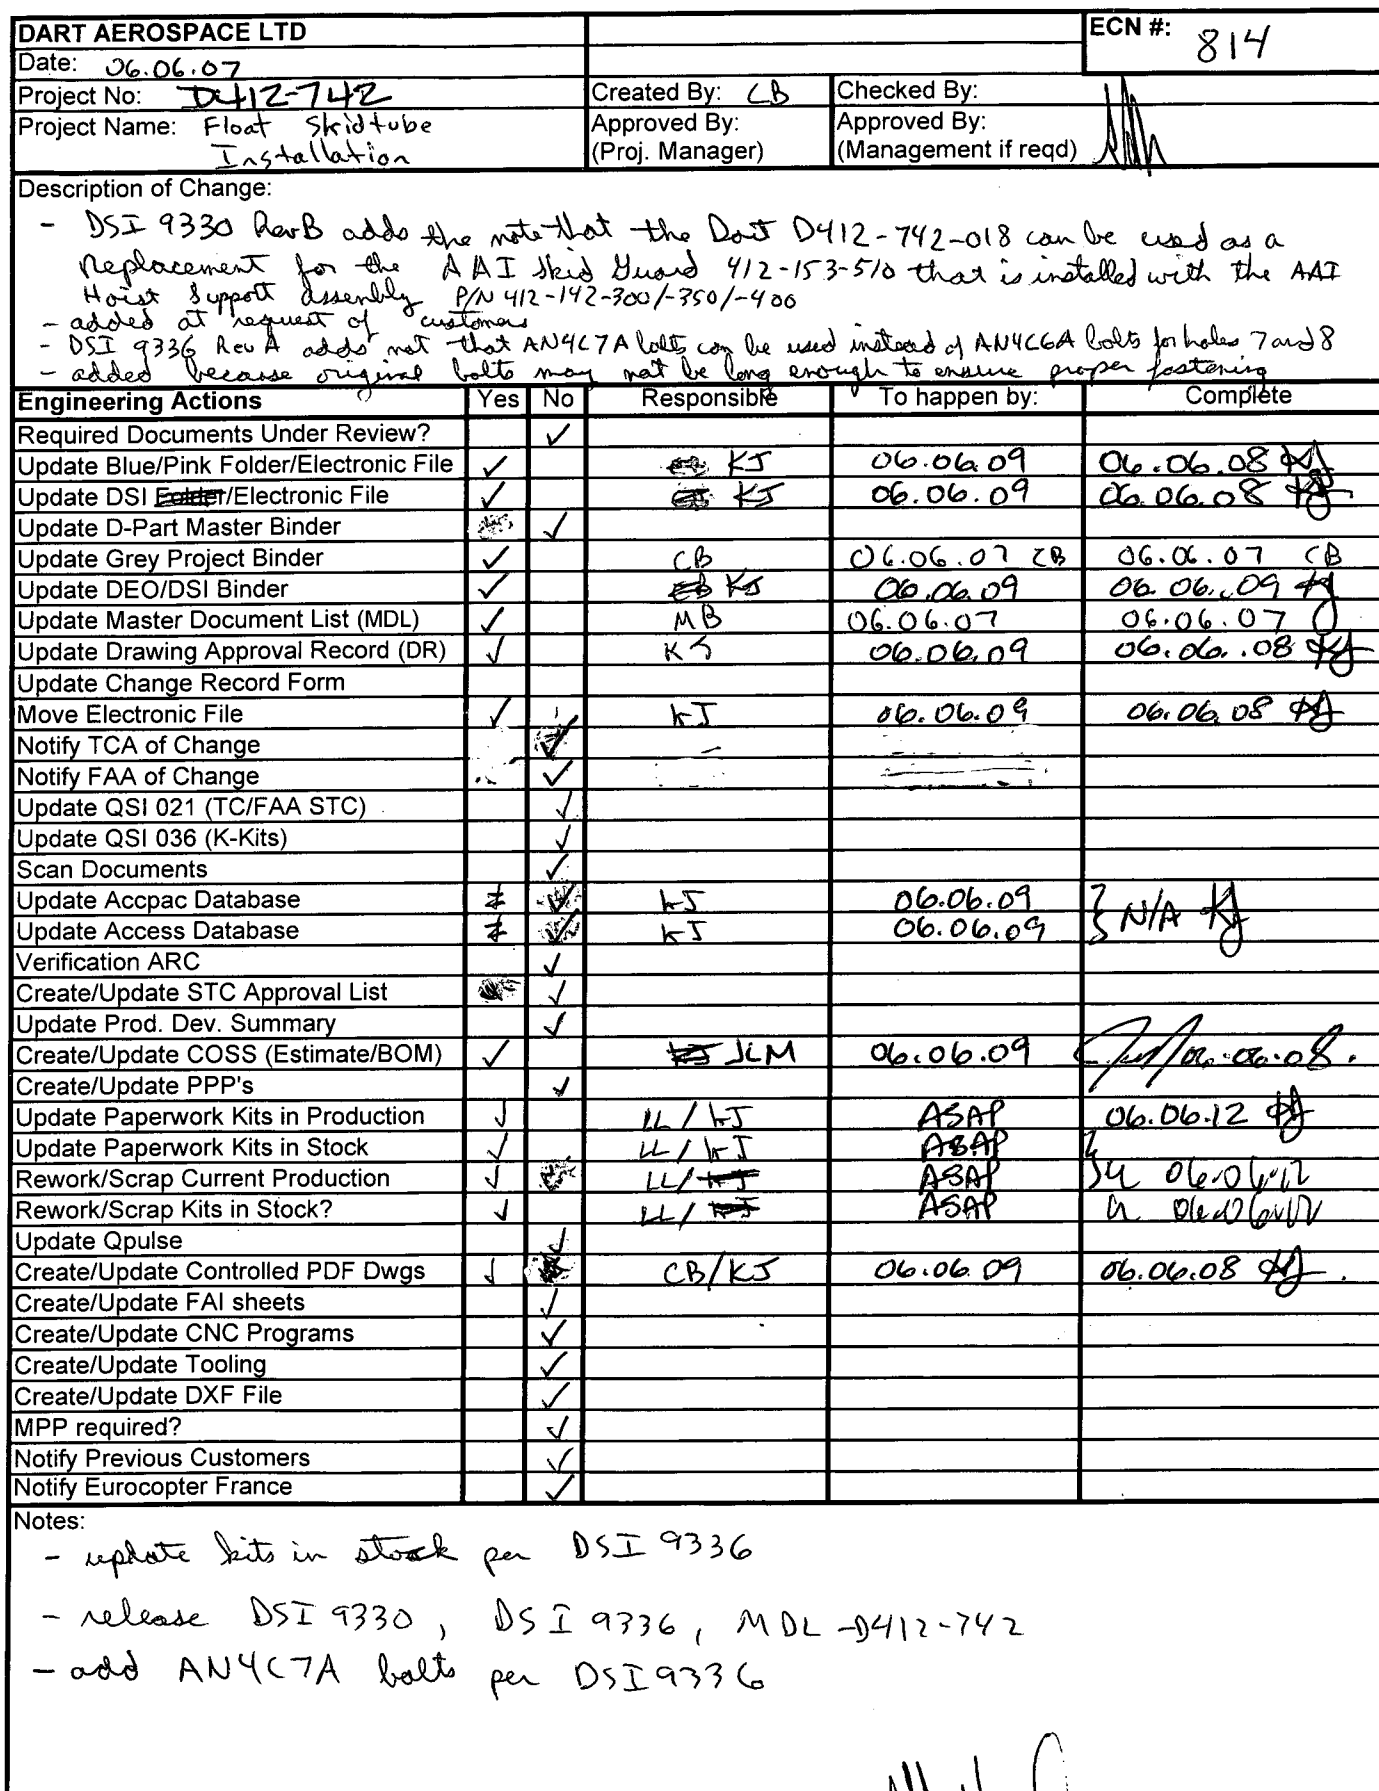 DART AEROSPACE LTD ECN #: 814
Date: 06.06.07
Project No: D412-742 Created By: CB Checked By:
Project Name: Float Skidtube Approved By: Approved By:
Installation (Proj. Manager) (Management if reqd)
Description of Change:
- DSI 9330 Rev B adds the note that the Dart D412-742-018 can be used as a
replacement for the AAI Skid Guard 412-153-510 that is installed with the AAI
Hoist Support assembly P/N 412-142-300/-350/-400
- added at request of customers
- DSI 9336 Rev A adds not that AN4C7A bolts can be used instead of AN4C6A bolts for holes 7 and 8
- added because original bolts may not be long enough to ensure proper fastening
Engineering Actions Yes No Responsible To happen by: Complete
Required Documents Under Review? ✓
Update Blue/Pink Folder/Electronic File ✓ KJ 06.06.09 06.06.08 KJ
Update DSI Folder/Electronic File ✓ KJ 06.06.09 06.06.08 KJ
Update D-Part Master Binder ✓
Update Grey Project Binder ✓ CB 06.06.07 CB 06.06.07 CB
Update DEO/DSI Binder ✓ KJ 06.06.09 06.06.09 KJ
Update Master Document List (MDL) ✓ MB 06.06.07 06.06.07
Update Drawing Approval Record (DR) ✓ KJ 06.06.09 06.06.08 KJ
Update Change Record Form
Move Electronic File ✓ KJ 06.06.09 06.06.08 KJ
Notify TCA of Change ✓
Notify FAA of Change ✓
Update QSI 021 (TC/FAA STC) ✓
Update QSI 036 (K-Kits) ✓
Scan Documents ✓
Update Accpac Database ✓ KJ 06.06.09
Update Access Database ✓ KJ 06.06.09 } N/A KJ
Verification ARC ✓
Create/Update STC Approval List ✓
Update Prod. Dev. Summary ✓
Create/Update COSS (Estimate/BOM) ✓ JLM 06.06.09 06.06.08.
Create/Update PPP's ✓
Update Paperwork Kits in Production ✓ LL/KJ ASAP 06.06.12 KJ
Update Paperwork Kits in Stock ✓ LL/KJ ASAP
Rework/Scrap Current Production ✓ LL/KJ ASAP 06.06.12
Rework/Scrap Kits in Stock? ✓ LL/KJ ASAP 06.06.12
Update Qpulse ✓
Create/Update Controlled PDF Dwgs ✓ CB/KJ 06.06.09 06.06.08 KJ.
Create/Update FAI sheets ✓
Create/Update CNC Programs ✓
Create/Update Tooling ✓
Create/Update DXF File ✓
MPP required? ✓
Notify Previous Customers ✓
Notify Eurocopter France ✓
Notes:
- update kits in stock per DSI 9336
- release DSI 9330, DSI 9336, MDL-D412-742
- add AN4C7A bolts per DSI9336